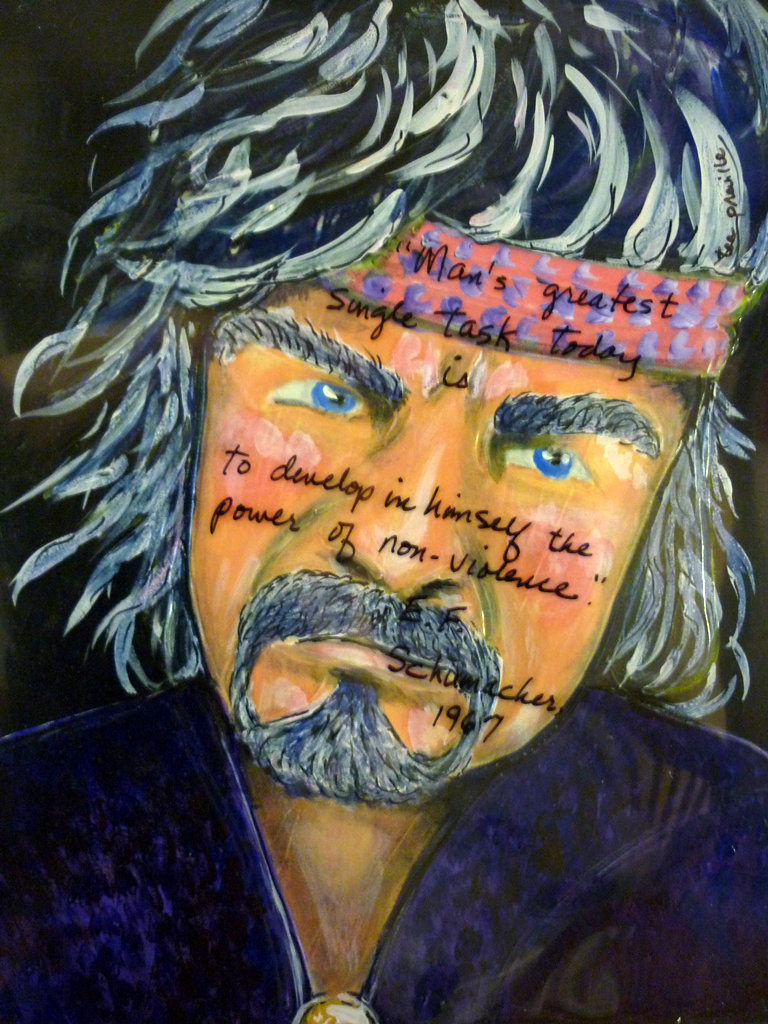 "Man's greatest
single task today
is
to develop in himself the
power of non-violence."
E.F.
Schumacher.
1967